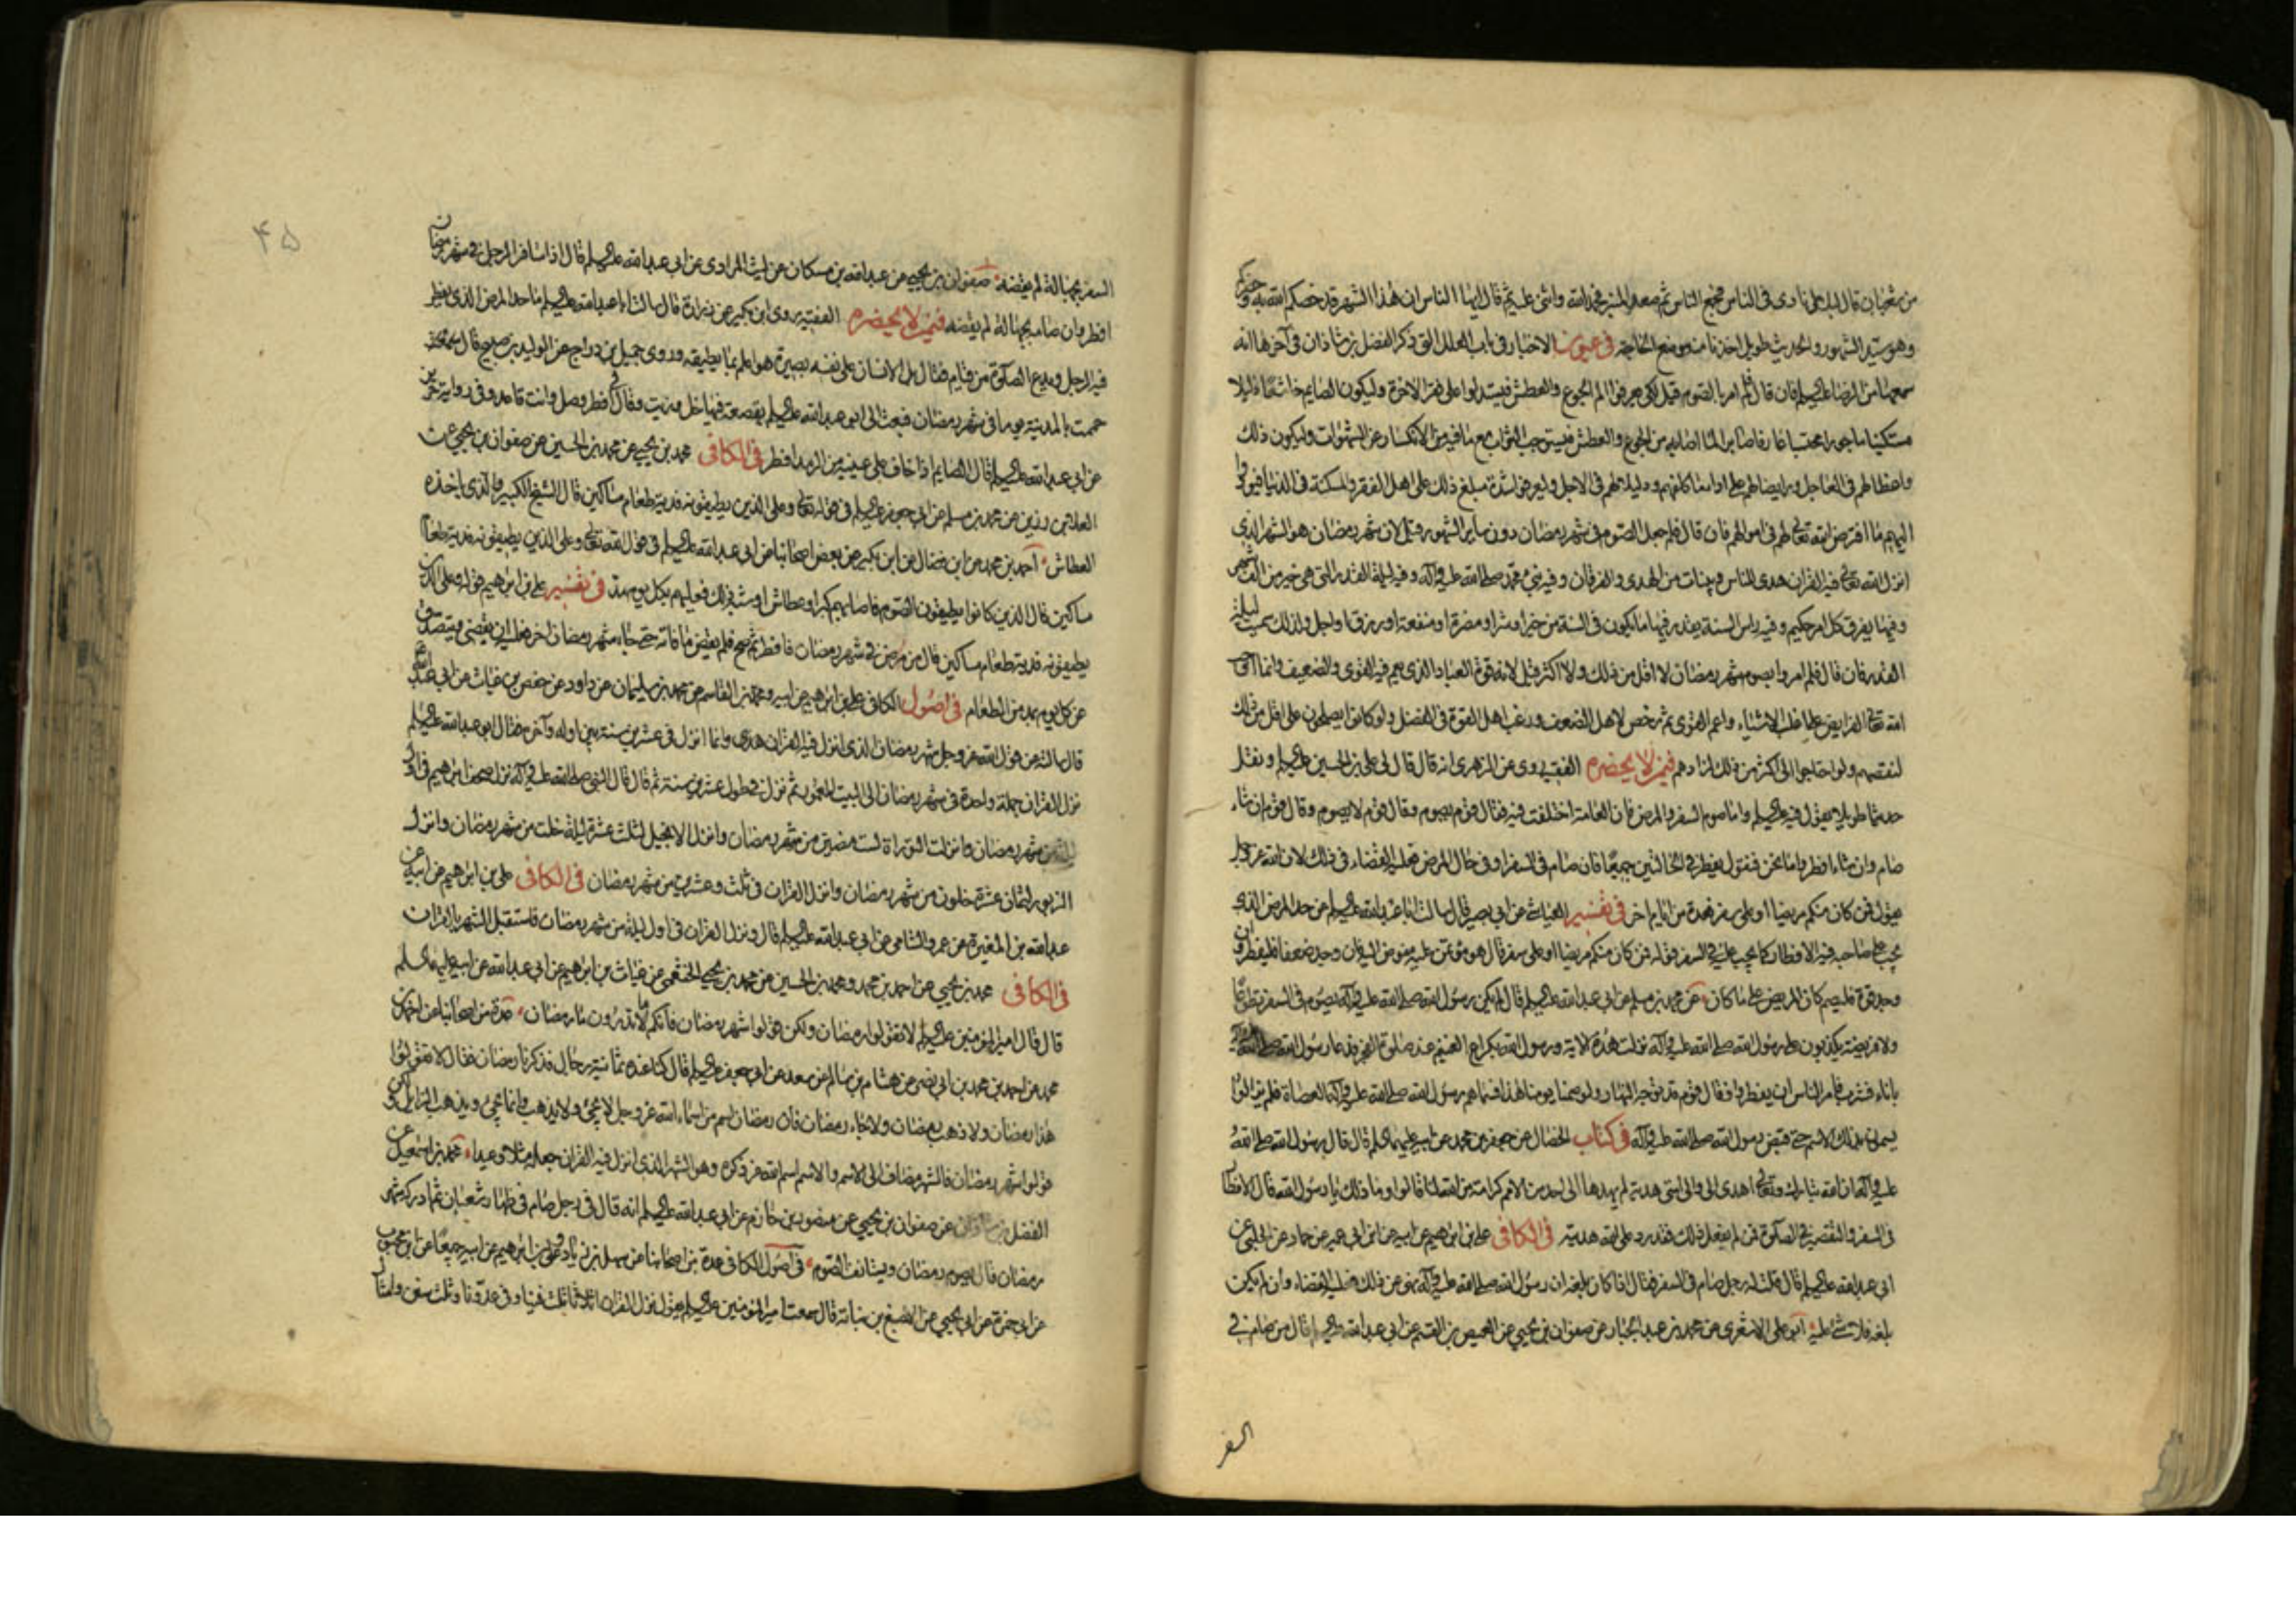 من شعبان قال لبلال ناد فى الناس فجمع الناس ثم صعد المنبر فحمد الله واثنى عليه ثم قال ايها الناس ان هذا الشهر قد خصكم الله به وحضركم
وهو سيد الشهور والحديث طويل اخذنا منه موضع الحاجة فى عيون الاخبار فى باب العلل التى ذكر الفضل بن شاذان فى آخرها انه
سمعها من الرضا عليه السلم فان قال فلم امر بالصوم قيل لكى يعرفوا الم الجوع والعطش فيستدلوا على فقر الاخرة وليكون الصايم خاشعا ذليلا
مستكينا ماجورا محتسبا عارفا صابرا لما اصابه من الجوع والعطش فيستوجب الثواب مع ما فيه من الانكسار عن الشهوات وليكون ذلك
واعظا لهم فى العاجل ورايضا لهم على اداء ما كلفهم ودليلا لهم فى الاجل وليعرفوا شدة مبلغ ذلك على اهل الفقر والمسكنة فى الدنيا فيؤدوا
اليهم ما افترض الله تعالى لهم فى اموالهم فان قال فلم جعل الصوم فى شهر رمضان دون ساير الشهور قيل لان شهر رمضان هو الشهر الذى
انزل الله تعالى فيه القران هدى للناس وبينات من الهدى والفرقان وفيه نبئ محمد صلى الله عليه وآله وفيه ليلة القدر التى هى خير من الف شهر
وفيها يفرق كل امر حكيم وفيه راس السنة يقدر فيها ما يكون فى السنة من خير او شر او مضرة او منفعة او رزق او اجل ولذلك سميت ليلة
القدر فان قال فلم امروا بصوم شهر رمضان لا اقل من ذلك ولا اكثر قيل لانه قوة العباد الذى يعم فيه القوى والضعيف وانما اوجب
الله تعالى الفرايض على اغلب الاشياء واعم القوى ثم رخص لاهل الضعف ورغب اهل القوة فى الفضل ولو كانوا يصلحون على اقل من ذلك
لنقصهم ولو احتاجوا الى اكثر من ذلك لزادهم فيمن لا يحضره الفقيه روى عن الزهرى انه قال قال لى على بن الحسين عليه السلم ونقل
حديثا طويلا يقول فيه عليه السلم واما صوم السفر والمرض فان العامة اختلفت فيه فقال قوم يصوم وقال قوم لا يصوم وقال قوم ان شاء
صام وان شاء افطر واما نحن فنقول يفطر فى الحالتين جميعا فان صام فى السفر او فى حال المرض فعليه القضاء فى ذلك لان الله عز وجل
يقول فمن كان منكم مريضا او على سفر فعدة من ايام اخر فى تفسير العياشى عن ابى بصير قال سالت ابا عبد الله عليه السلم عن حد المرض الذى
يجب على صاحبه فيه الافطار كما يجب عليه فى السفر فى قوله فمن كان منكم مريضا او على سفر قال هو مؤتمن عليه مفوض اليه فان وجد ضعفا فليفطر وان
وجد قوة فليصم كان المريض على ما كان عن محمد بن مسلم عن ابى عبد الله عليه السلم قال لم يكن رسول الله صلى الله عليه وآله يصوم فى السفر تطوعا
ولا فريضة يكذبون على رسول الله صلى الله عليه وآله نزلت هذه الاية ورسول الله بكراع الغميم عند صلوة الفجر فدعا رسول الله صلى الله عليه وآله
باناء فشرب وامر الناس ان يفطروا وقال قوم قد توجه النهار ولو صمنا يومنا هذا فسماهم رسول الله صلى الله عليه وآله العصاة فلم يزالوا
يسمون بذلك الاسم حتى قبض رسول الله صلى الله عليه وآله فى كتاب الخصال عن جعفر بن محمد عن ابيه عليهما السلم قال قال رسول الله صلى الله
عليه وآله ان الله تبارك وتعالى اهدى الى والى امتى هدية لم يهدها الى احد من الامم كرامة من الله لنا قالوا وما ذلك يا رسول الله قال الافطار
فى السفر والتقصير فى الصلوة فمن لم يفعل ذلك فقد رد على الله هديته فى الكافى على بن ابرهيم عن ابيه عن ابن ابى عمير عن حماد عن الحلبى عن
ابى عبد الله عليه السلم قال قلت له رجل صام فى السفر فقال اذا كان بلغه ان رسول الله صلى الله عليه وآله نهى عن ذلك فعليه القضاء وان لم يكن
بلغه فلا شئ عليه ابو على الاشعرى عن محمد بن عبد الجبار عن صفوان بن يحيى عن العيص بن القسم عن ابى عبد الله عليه السلم قال من صام فى
السفر
۴۵
السفر بجهالة لم يقضه صفوان بن يحيى عن عبد الله بن مسكان عن ليث المرادى عن ابى عبد الله عليه السلم قال اذا سافر الرجل فى شهر رمضان
افطر وان صامه بجهالة لم يقضه فيمن لا يحضره الفقيه روى ابن بكير عن زرارة قال سالت ابا عبد الله عليه السلم ما حد المرض الذى يفطر
فيه الرجل ويدع الصلوة من قيام فقال بل الانسان على نفسه بصيرة هو اعلم بما يطيقه وروى جميل بن دراج عن الوليد بن صبيح قال
حممت بالمدينة يوما فى شهر رمضان فبعث الى ابو عبد الله عليه السلم بقصعة فيها خل وزيت وقال لى افطر وصل وانت قاعد وفى رواية حريز
عن ابى عبد الله عليه السلم قال الصايم اذا خاف على عينيه من الرمد افطر فى الكافى محمد بن يحيى عن محمد بن الحسين عن صفوان بن يحيى عن
العلا بن رزين عن محمد بن مسلم عن ابى جعفر عليه السلم فى قول الله تعالى وعلى الذين يطيقونه فدية طعام مساكين قال الشيخ الكبير والذى ياخذه
العطاش احمد بن محمد عن ابن فضال عن ابن بكير عن بعض اصحابنا عن ابى عبد الله عليه السلم فى قول الله تعالى وعلى الذين يطيقونه فدية طعام
مساكين قال الذين كانوا يطيقون الصوم فاصابهم كبر او عطاش او شبه ذلك فعليهم بكل يوم مد فى تفسير على بن ابرهيم قوله وعلى الذين
يطيقونه فدية طعام مساكين قال من مرض فى شهر رمضان فافطر ثم صح فلم يقض ما فاته حتى جاء شهر رمضان اخر فعليه ان يقضى ويتصدق
عن كل يوم بمد من الطعام فى اصول الكافى على بن ابرهيم عن ابيه ومحمد بن القاسم عن محمد بن سليمان عن داود عن حفص بن غياث عن ابى عبد الله
قال سالته عن قول الله عز وجل شهر رمضان الذى انزل فيه القران هدى وانما انزل فى عشرين سنة بين اوله وآخره فقال ابو عبد الله عليه السلم
نزل القران جملة واحدة فى شهر رمضان الى البيت المعمور ثم نزل فى طول عشرين سنة ثم قال قال النبى صلى الله عليه وآله نزل صحف ابرهيم فى اول
ليلة من شهر رمضان وانزلت التوراة لست مضين من شهر رمضان وانزل الانجيل لثلث عشرة ليلة خلت من شهر رمضان وانزل
الزبور لثمان عشرة خلون من شهر رمضان وانزل القران فى ثلث وعشرين من شهر رمضان فى الكافى على بن ابرهيم عن ابيه عن
عبد الله بن المغيرة عن عمرو الشامى عن ابى عبد الله عليه السلم قال ونزل القران فى اول ليلة من شهر رمضان فاستقبل الشهر بالقران
فى الكافى محمد بن يحيى عن احمد بن محمد ومحمد بن الحسين عن محمد بن يحيى الخثعمى عن غياث بن ابرهيم عن ابى عبد الله عن ابيه عليهما السلم
قال قال امير المؤمنين عليه السلم لا تقولوا رمضان ولكن قولوا شهر رمضان فانكم لا تدرون ما رمضان عدة من اصحابنا عن احمد بن
محمد عن احمد بن محمد بن ابى نصر عن هشام بن سالم عن سعد عن ابى جعفر عليه السلم قال كنا عنده ثمانية رجال فذكرنا رمضان فقال لا تقولوا
هذا رمضان ولا ذهب رمضان ولا جاء رمضان فان رمضان اسم من اسماء الله عز وجل لا يجئ ولا يذهب وانما يجئ ويذهب الزايل ولكن
قولوا شهر رمضان فالشهر مضاف الى الاسم والاسم اسم الله عز ذكره وهو الشهر الذى انزل فيه القران جعله مثلا وعيدا محمد بن اسمعيل عن
الفضل بن شاذان عن صفوان بن يحيى عن منصور بن حازم عن ابى عبد الله عليه السلم انه قال فى رجل صام فى ظهار شعبان ثم ادركه شهر
رمضان قال يصوم رمضان ويستانف الصوم فى اصول الكافى عدة من اصحابنا عن سهل بن زياد وعلى بن ابرهيم عن ابيه جميعا عن ابن محبوب
عن ابى حمزة عن ابى يحيى عن الاصبغ بن نباتة قال سمعت امير المؤمنين عليه السلم يقول نزل القران اثلاثا ثلث فينا وفى عدونا وثلث سنن وامثال